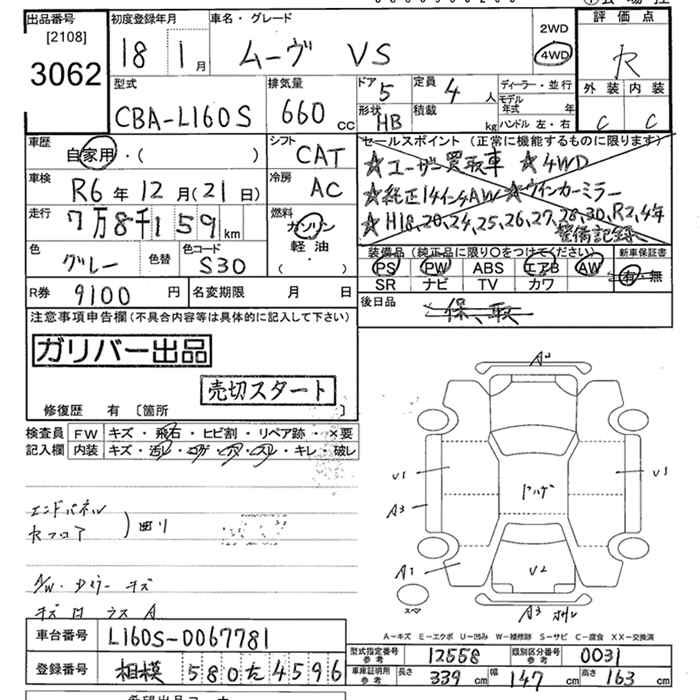 出品番号 初度登録年月 車名・グレード 評価点
[2108] 18 1月 ムーヴ VS 2WD
3062 4WD R
型式 排気量 ドア 5 定員 4人 ディーラー・並行 外装 内装
CBA-L160S 660cc 形状 HB 積載 kg モデル年式 年 ハンドル 左・右 C C
車歴 自家用・( ) シフト CAT セールスポイント(正常に機能するものに限ります)
★ユーザー買取車 ★4WD
車検 R6年12月(21日) 冷房 AC ★純正14インチAW★ウインカーミラー
走行 7万8千159km 燃料 ガソリン 軽油・( ) ★H18,20,24,25,26,27,28,30,R2,4年
整備記録
色 グレー 色替 色コード S30 装備品(純正品に限り○をつけてください) 新車保証書
PS PW ABS エアB AW 有・無
SR ナビ TV カワ
R券 9100円 名変期限 月 日 後日品 保、取
注意事項申告欄(不具合内容等は具体的に記入して下さい)
ガリバー出品
売切スタート
修復歴 有 〔箇所 〕
検査員 FW キズ・飛石・ヒビ割・リペア跡・×要
記入欄 内装 キズ・汚レ・コゲ・アナ・スレ・キレ・破レ
エンドパネル
A/W・
キズ
A
U1
A3
A1
U2
A3
U1
スペア
A-キズ E-エクボ U-凹み W-補修跡 S-サビ C-腐食 XX-交換済
車台番号 L160S-0067781
型式指定番号 参考 12558 類別区分番号 参考 0031
登録番号 相模 580た4596
車庫証明用 参考 長さ 339cm 幅 147cm 高さ 163cm